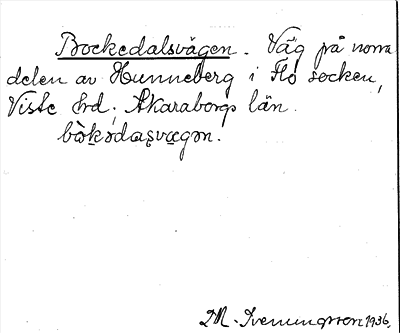 Bockedalsvägen. Väg på norra
delen av Hunneberg i Flo socken,
Viste hrd, Skaraborgs län.
bòkədaʂvægən.
M. Sveningsson 1936.